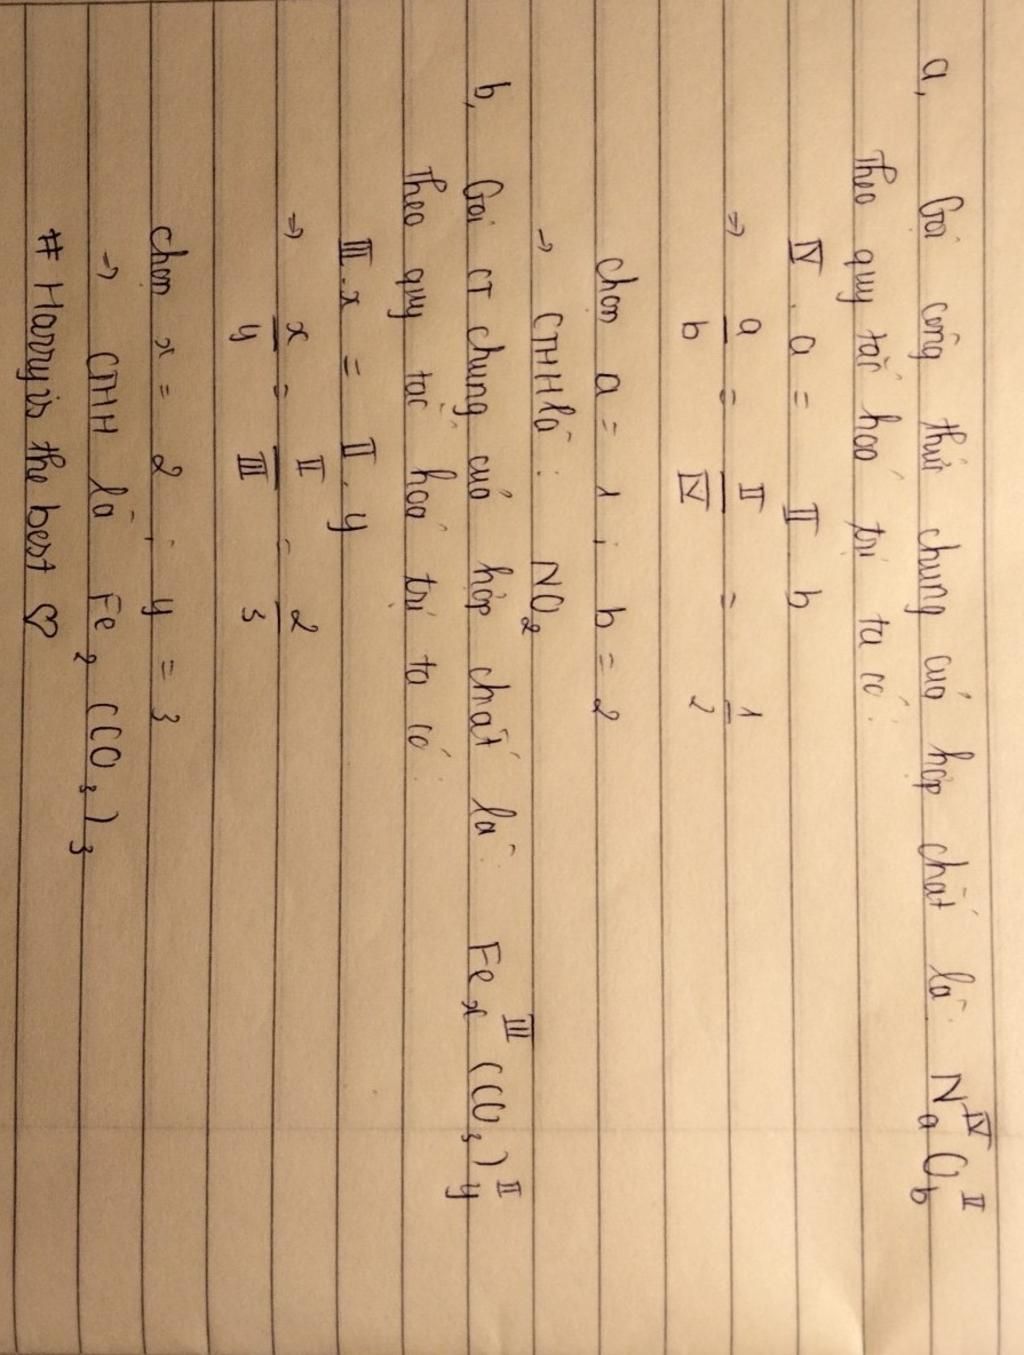 a, Gọi công thức chung của hợp chất là: NaOb IV II
Theo quy tắc hoá trị ta có:
IV . a = II . b
⇒ a/b = II/IV = 1/2
chọn a = 1 ; b = 2
→ CTHH là : NO2
b, Gọi CT chung của hợp chất là: Fex(CO3)y III II
Theo quy tắc hoá trị ta có:
III . x = II . y
⇒ x/y = II/III = 2/3
chọn x = 2 ; y = 3
→ CTHH là Fe2(CO3)3
# Harry is the best ♡